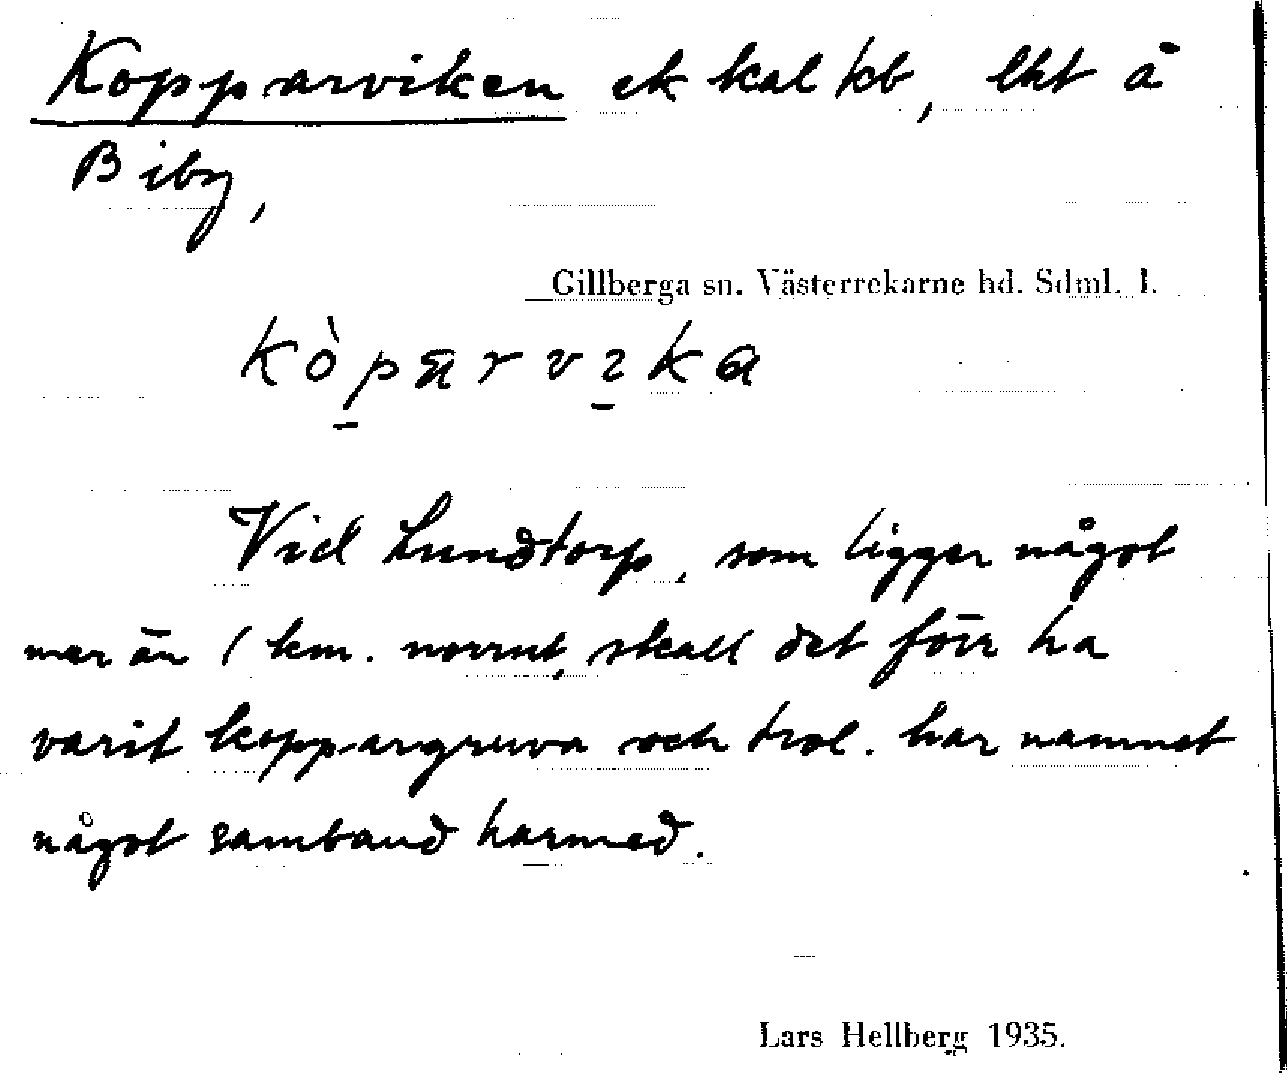 Kopparviken ek kal kb, lht å
Biby,
Gillberga sn. Västerrekarne hd. Sdml. l.
kòparvıka
Vid Lundtorp, som ligger något
mer än 1 km. norrut, skall det förr ha
varit koppargruva och trol. har namnet
något samband harmed.
Lars Hellberg 1935.